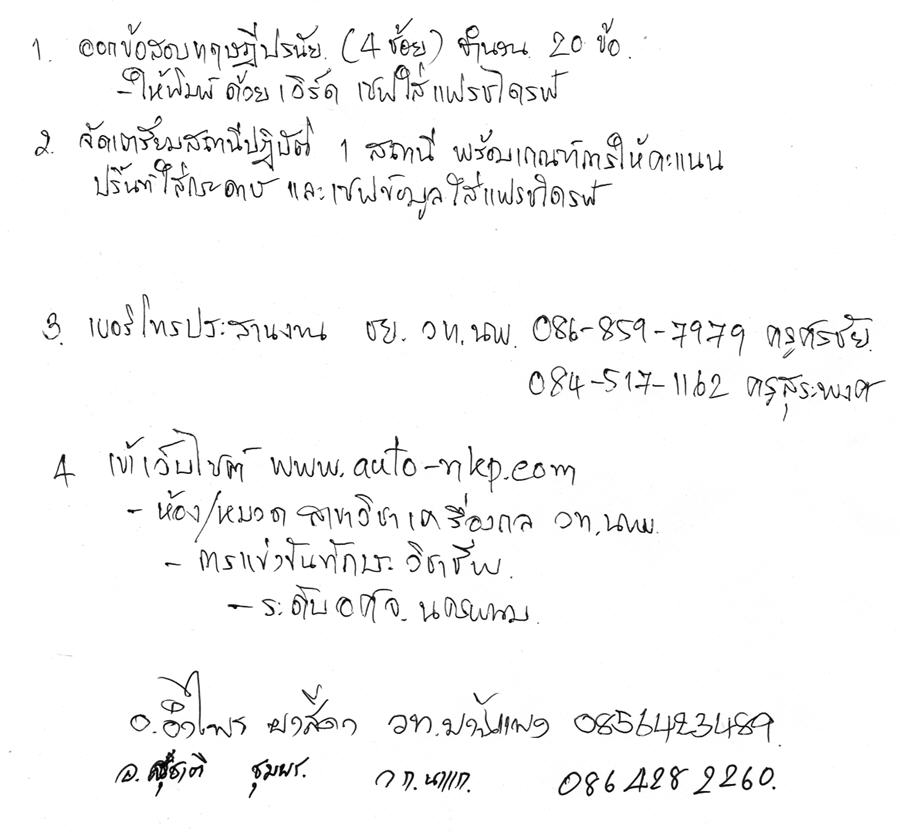 1. ออกข้อสอบทฤษฎีปรนัย (4 ช้อย) จำนวน 20 ข้อ.
- ให้พิมพ์ด้วย เวิร์ด เซฟใส่แฟรชไดรฟ์
2. จัดเตรียมสถานีปฏิบัติ 1 สถานี พร้อมเกณฑ์การให้คะแนน
ปริ้นท์ใส่กระดาษ และเซฟข้อมูลใส่แฟรชไดรฟ์
3. เบอร์โทรประสานงาน ชย. วท.นพ. 086-859-7979 ครูศรชัย.
084-517-1162 ครูสุระพงศ์
4 เข้าเว็บไซต์ www.auto-nkp.com
- ห้อง/หมวด สาขาวิชาเครื่องกล วท.นพ.
- การแข่งขันทักษะวิชาชีพ.
- ระดับ อศจ. นครพนม.
อ.อำไพร วท. 0856423489.
อ. ชุมพร. 086 428 2260.